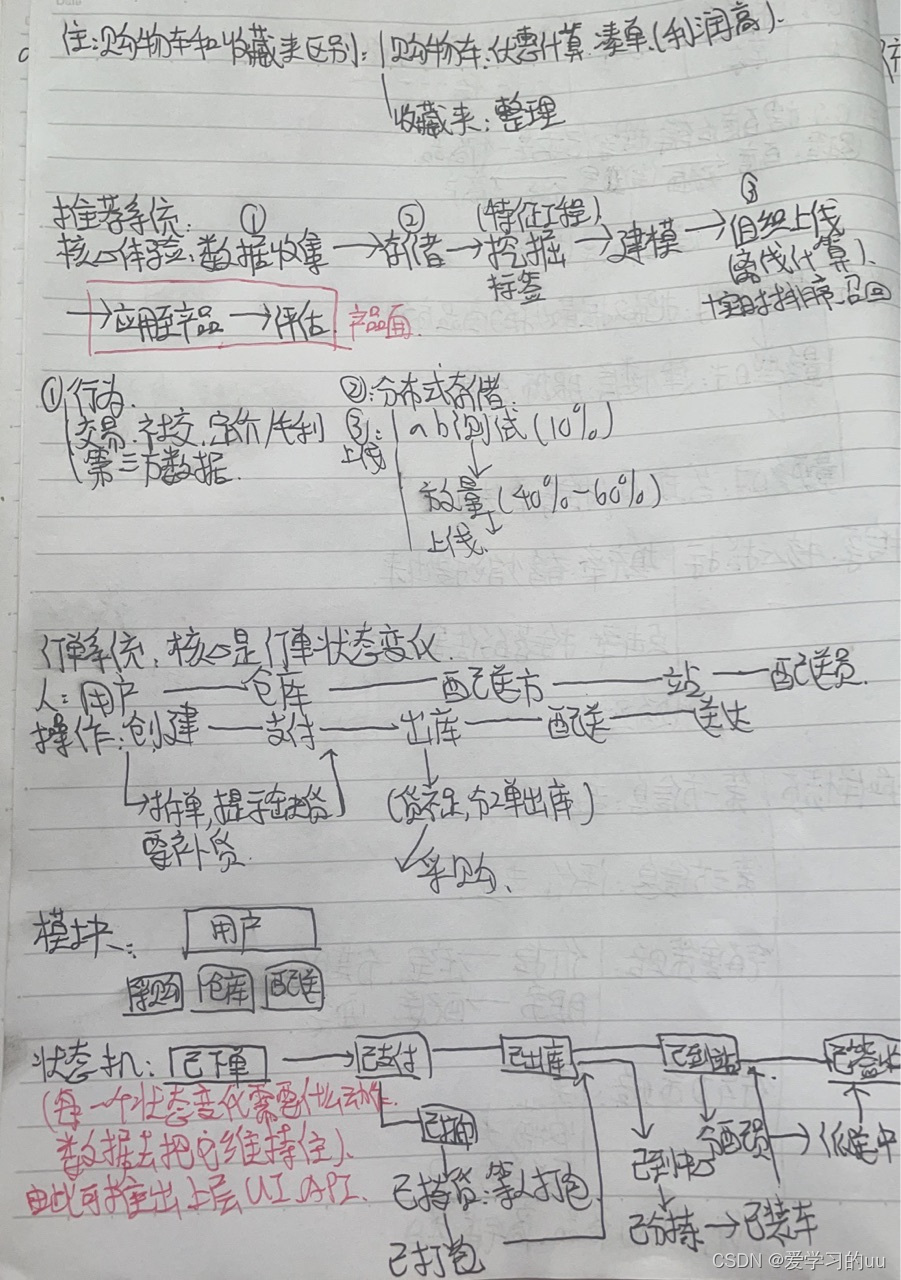 注:购物车和收藏夹区别: 购物车:优惠计算.凑单.(利润高).
收藏夹:整理
推荐系统: ① ② (特征工程). ③
核心体验:数据收集→存储→挖掘→建模→组织上线
标签 (离线计算).
+实时排序.召回
→应用至产品→评估. 产品面
①行为. ②:分布式存储.
交易.社交.定价/毛利 ③: ab测试(10%)
第三方数据. 上线
放量(40%-60%)
上线.
订单系统:核心是订单状态变化.
人:用户——仓库——配送方——站——配送员.
操作:创建——支付→出库——配送——送达
拆单,提示缺货 (货不足,分单出库)
要补货.
采购、
模块: 用户
采购 仓库 配送
状态机: 已下单 → 已支付 已出库 已到站 已签收
(每一个状态变化需要什么动作.
数据去把它维持住).
由此可推出上层UI.API.
已拣货:等人打包.
已打包
已到中心
已分拣→已装车
分配员→配送中
CSDN @爱学习的uu